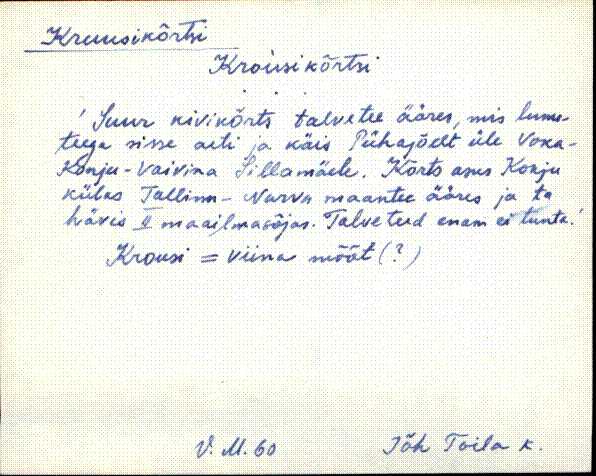 Kruusikõrtsi
Krousikõrtsi
' Suur kivikõrts talvetee ääres, mis lume-
teega sisse aeti ja käis Pühajõelt üle Voka-
Konju-Vaivina Sillamäele. Kõrts asus Konju
külas Tallinn-Narva maantee ääres ja ta
hävis II maailmasõjas. Talveteed enam ei tunta.'
Krousi = viina mõõt (?)
V. M. 60 Jõh Toila k.